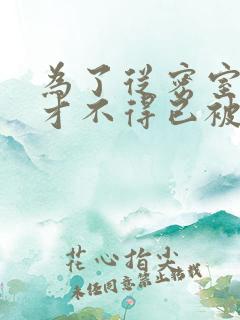 為了從密室
才不得已被
花心指尖
未经同意禁止转载